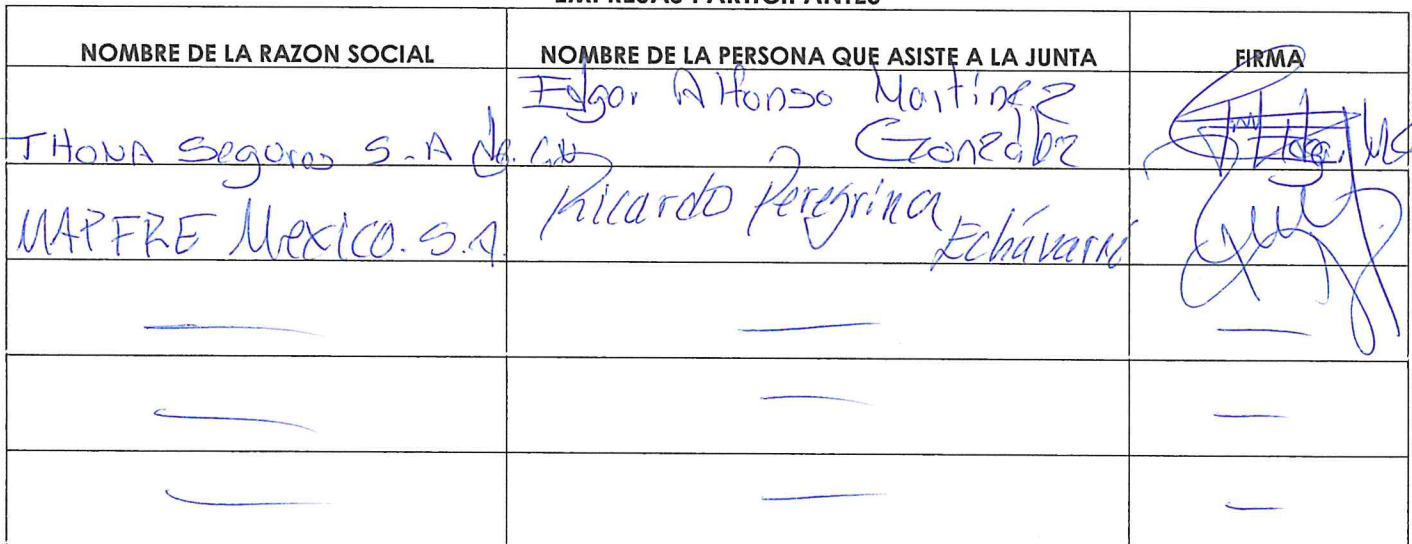 EMPRESAS PARTICIPANTES
NOMBRE DE LA RAZON SOCIAL
NOMBRE DE LA PERSONA QUE ASISTE A LA JUNTA
FIRMA
THONA Seguros S.A de C.V
Edgar Alfonso Martínez
González
MAPFRE Mexico. S.A.
Ricardo Peregrina
Echávarri